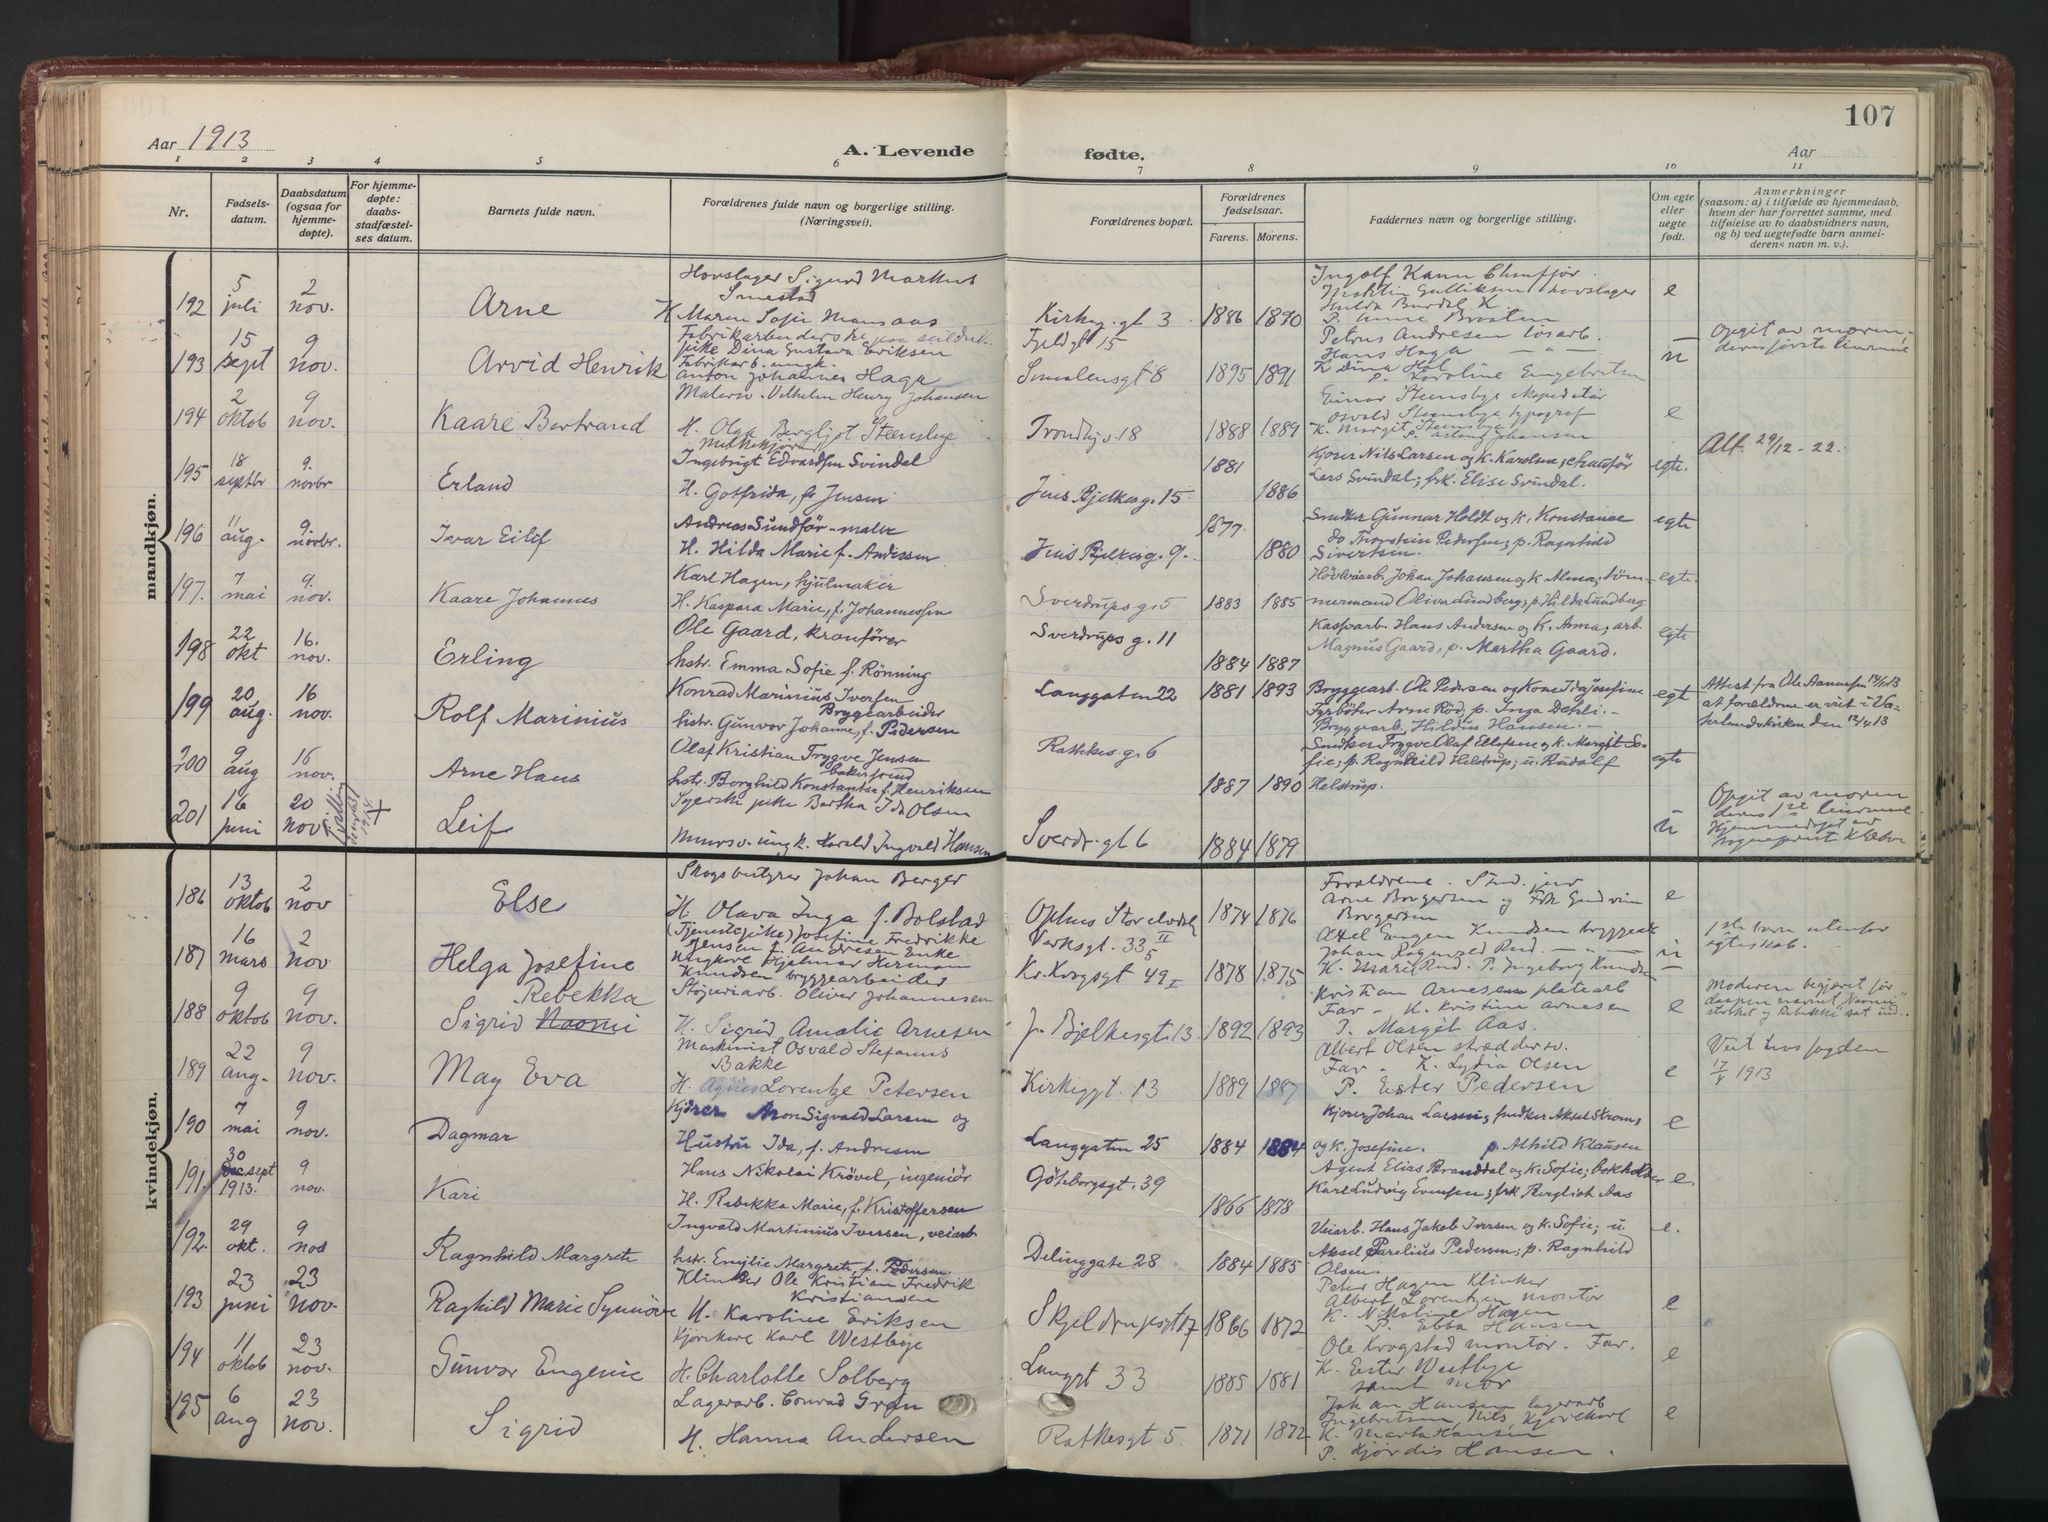 107
Aar 1913
A. Levende
fødte.
Aar
1 2 3 4 5 6 7 8 9 10 11
Nr.
Fødsels-
datum.
Daabsdatum
(ogsaa for
hjemme-
døpte).
For hjemme-
døpte:
daabs-
stadfæstel-
ses datum.
Barnets fulde navn.
Forældrenes fulde navn og borgerlige stilling.
(Næringsvei).
Forældrenes bopæl.
Forældrenes
fødselsaar.
Farens. Morens.
Faddernes navn og borgerlige stilling.
Om egte
eller
uegte
født.
Anmerkninger
(saasom: a) i tilfælde av hjemmedaab,
hvem der har forrettet samme, med
tilføielse av to daabsvidners navn,
og b) ved uegtefødte barn anmel-
derens navn m. v.).
mandkjøn.
192 5 juli 2 nov. Arne
Hovslager Sigurd Markus
Smestad
H. Maren Sofie
3 1886 1890
Ingolf
Martin Gulliksen hovslager
Hulda K.
P. Anne Braaten
e
193 15 sept 9 nov. Arvid Henrik
pike Dina Gustava Eriksen
Anton Johannes Haga
15
8 1895 1891
Petrus Andresen løsarb.
Hans Haga
K Dina
p. Karoline Engebretsen
u
Opgit av moren
194 2 oktob 9 nov. Kaare Bertrand
Malersv. Vilhelm Henry Johansen
H. Olga Bergljot Steensbye
18 1888 1889
Einar Steensbye ekspeditør
Osvald Steensbye typograf
K. Margit Steensbye
p. Aslaug Johansen
e
195 18 septbr 9. novbr Erland
Ingebrigt Edvardsen Svindal
H. Gotfrida, f. Jensen
Jens Bjelkesg. 15 1881 1886
Kjører Nils Larsen og K. Karoline; chaufför
Lars Svindal; frk. Elise Svindal.
egte.
Alt. 29/12-22.
196 11 aug. 9. novbr. Ivar Eilif
Andreas Sundför - maler
H. Hilda Marie f. Andersen
Jens Bjelkesg. 9. 1877 1880
Snedker Gunnar Holdt og K. Konstance
do Thorstein Pedersen; p. Ragnhild
Sivertsen.
egte
197. 7 mai 9. nov. Kaare Johannes
Karl Hagen, hjulmaker
H. Kaspara Marie, f. Johannessen
Sverdrupsg. 5 1883 1885
Høvleriarb. Johan Johansen og K Alma; töm-
mermand Oliver Lundberg; p. Hilda Lundberg
egte.
198 22 okt 16. nov. Erling
Ole Gaard, kranförer
hstr. Emma Sofie f. Rönning
Sverdrups g. 11 1884 1887
Hans Andersen og K. Anna; arb.
Magnus Gaard, p. Martha Gaard.
egte
199 20 aug. 16 nov. Rolf Marinius
Konrad Marinius Iversen
Bryggearbeider
hstr. Gunvor Johanne, f. Pedersen
Langgaten 22 1881 1893
Bryggearb. Ole Pedersen og Kone Ida Josefine
Fyrböter Arne Röd, p. Inga Dehli. -
Bryggearb. Hildus Hansen. -
egt
Attest fra Ole Aannesen
at forældrene er viet i Va-
terlandskirken den 12/4 13
200 9 aug 16 nov. Arne Hans
Olaf Kristian Trygve Jensen
bakersvend
hstr. Borghild Konstantse f. Henriksen
Rathkesg. 6 1887 1890
Snedker Trygve Olaf Ellefsen og k. Margit So-
fie; p. Ragnhild Helstrup; u. Rudolf
Helstrup.
egte
201 16 juni 20 nov Leif
pike Bertha Ida Olsen
Mursv. ungk. Harald Ingvald Hansen
Sverdr. gt 6 1884 1879
u
Opgit av moren
kvindekjøn.
186 13 oktob 2 nov Else
Skogsbestyrer Johan Berger
H. Olava Inga f. Bolstad
Ophus Storelvdal 1874 1876
Forældrene. Stud. jur
Arne Borgersen og Frk
Borgersen
e
187 16 mars 2 nov Helga Josefine
(Tjenestepike) Josefine Fredrikke
Jensen f. Andresen Enke
Ungkarl Hjalmar Herman
Knudsen bryggearbeider
Verksgt. 33
Kr. Krogsgt 49 1878 1875
Axel Eugen Knudsen bryggearb
u
1ste barn utenfor
egteskab.
188 9 oktob 9 nov. Sigrid Naomi
Rebekka
Støperiarb. Oliver Johannesen
H. Sigrid Amalie Arnesen
J. Bjelkesgt. 13 1892 1893
Kristian Arnesen platearb
Far - K. Kristine Arnesen
J. Margit Aas.
e
Moderen begjæret før
189 22 aug. 9 nov. May Eva
Maskinist Osvald Stefanus
Bakke
H. Agnes Lorentze Petersen
13 1889 1887
Albert Olsen skræddersv.
Far. K. Lydia Olsen
P. Ester Pedersen
e
Viet hos fogden
1913
190 7 mai 9 nov. Dagmar
Kjører Aron Sigvald Larsen og
Hustru Ida, f. Andresen
Langgaten 25 1884 1884
Kjører Johan Larsen; snedker Aksel
og k. Josefine. p. Alhild Klausen
e
191. 30 sept 1913. 9 nov. Kari
Hans Nikolai Krövel, ingeniör
H. Rebekka Marie, f. Kristoffersen
Göteborgsgt. 39 1866 1878
Agent Elias Branddal og K. Sofie; bokholder
Karl Ludvig Evensen; frk Bergliot Aas
e.
192. 29 okt. 9 nov Ragnhild Margrete
Ingvald Martinius Iversen, veiarb
hstr. Emilie Margrete, f. Pedersen
Delinggate 28 1884 1885
Veiarb. Hans Jakob Iversen og k. Sofie; u.
Aksel Parelius Pedersen; p. Ragnhild
Olsen.
e.
193 23 juni 23 nov. Raghild Marie Synnöve
Klinker Ole Kristian Fredrik
Kristiansen
H. Karoline Eriksen
17 1866 1872
Peter Hagen Klinker
Albert Lorentzen montör
K. Nikoline Hagen
P. Ebba Hansen
e
194 11 oktob 23 nov. Gunvor Eugenie
Kjörekarl Karl Westbye
H. Charlotte Solberg
Langgt 33 1885 1881
Ole Krogstad montör. Far.
K. Ester Westbye
samt mor
e
195 6 aug 23 nov. Sigrid
Lagerarb. Conrad Grøn
H. Hanna Andersen
Ratkesgt 5 1871 1872
Johan Hansen lagerarb
Ingebretsen Nils, Kjörekarl
K. Marta Hansen
P. Hjördis Hansen.
e